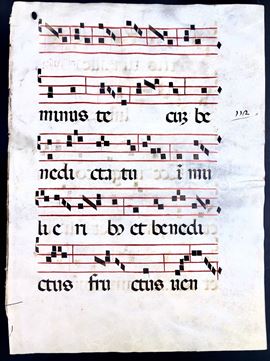 minus te cuȝ be
112
nedi cta tu ī mu
li e ri bȝ et benedi
ctus fru ctus uen